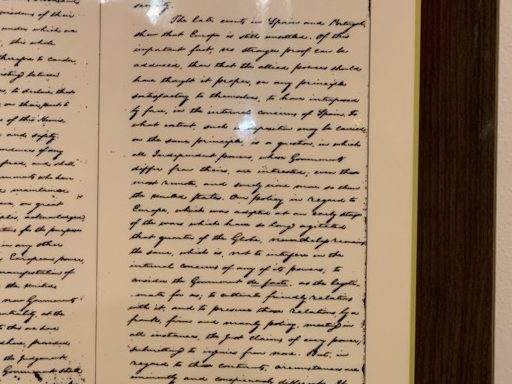 of their
under which we
this whole
to candor,
between
to declare that
on their part to
of this
and safety
of any
and shall
who have
maintained
on great
acknowledged
for the purpose
in any other
European power,
manifestation of
the United
new Governments
at the
to this we have
provided
the judgement

The late events in Spain and Portugal,
shew that Europe is still unsettled. Of this
important fact, no stronger proof can be
adduced, than that the allied powers should
have thought it proper, on any principle
satisfactory to themselves, to have interposed
by force, in the internal concerns of Spain. To
what extent, such interposition may be carried,
on the same principle, is a question, in which
all Independent powers, whose Governments
differ from theirs, are interested, even those
most remote, and surely none more so than
the United States. Our policy in regard to
Europe, which was adopted at an early stage
of the wars which have so long agitated
that quarter of the Globe, nevertheless remains
the same, which is, not to interfere in the
internal concerns of any of its powers; to
consider the Government de facto, as the legiti-
mate for us; to cultivate friendly relations
with it, and to preserve those relations by a
frank, firm and manly policy, meeting in
all instances, the just claims of every power;
submitting to injuries from none. But, in
regard to these continents, circumstances are
eminently and conspicuously different. It